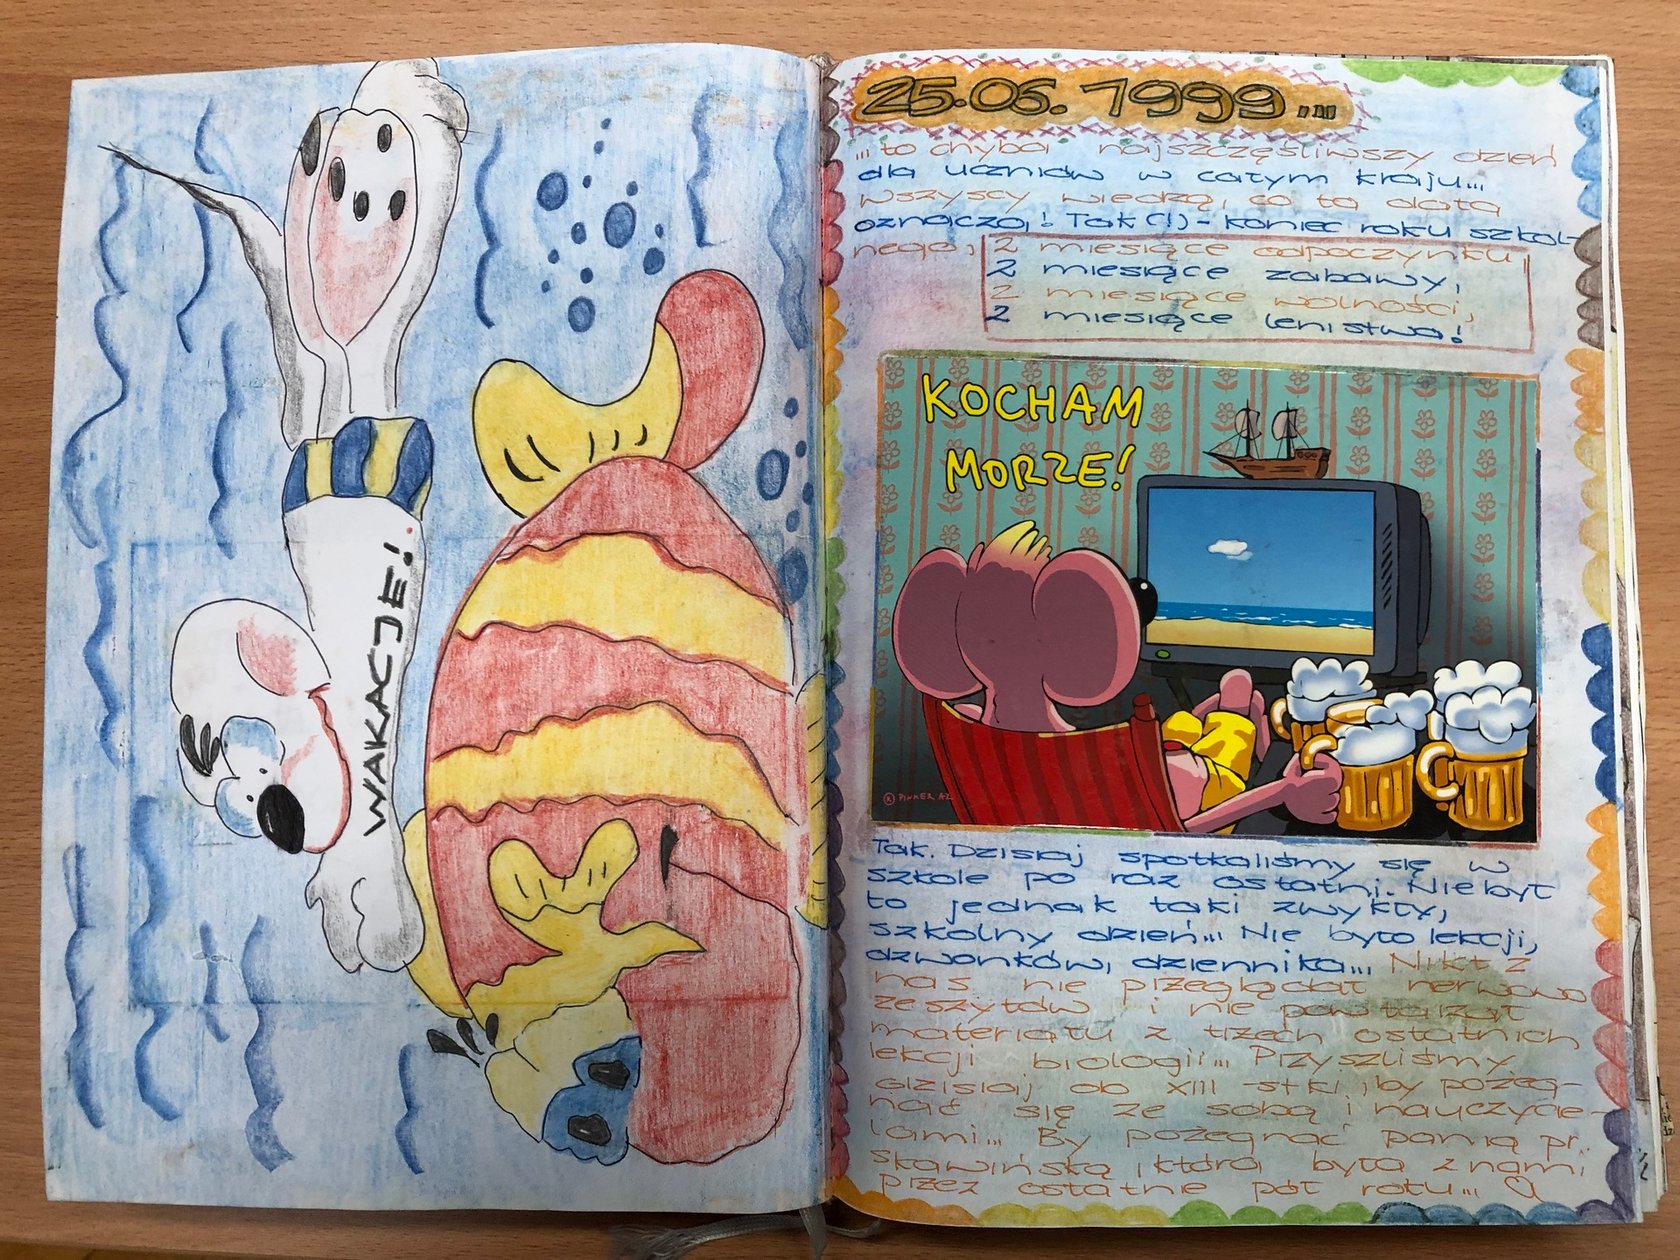 WAKACJE!
25.06.1999...
... to chyba najszczęśliwszy dzień
dla uczniów w całym kraju...
wszyscy wiedzą, co ta data
oznacza! Tak (!) - koniec roku szkol-
nego, 2 miesiące odpoczynku,
2 miesiące zabawy,
2 miesiące wolności,
2 miesiące lenistwa!
KOCHAM
MORZE!
PINKER
Tak. Dzisiaj spotkaliśmy się w
szkole po raz ostatni. Nie był
to jednak taki zwykły,
szkolny dzień... Nie było lekcji,
dzwonków, dziennika... Nikt z
nas nie przeglądał nerwowo
zeszytów i nie powtarzał
materiału z trzech ostatnich
lekcji biologii... Przyszliśmy
dzisiaj do XIII -stki, by pożeg-
nać się ze sobą i nauczycie-
lami... By pożegnać panią pr.
Skawińską, która była z nami
przez ostatnie pół roku...